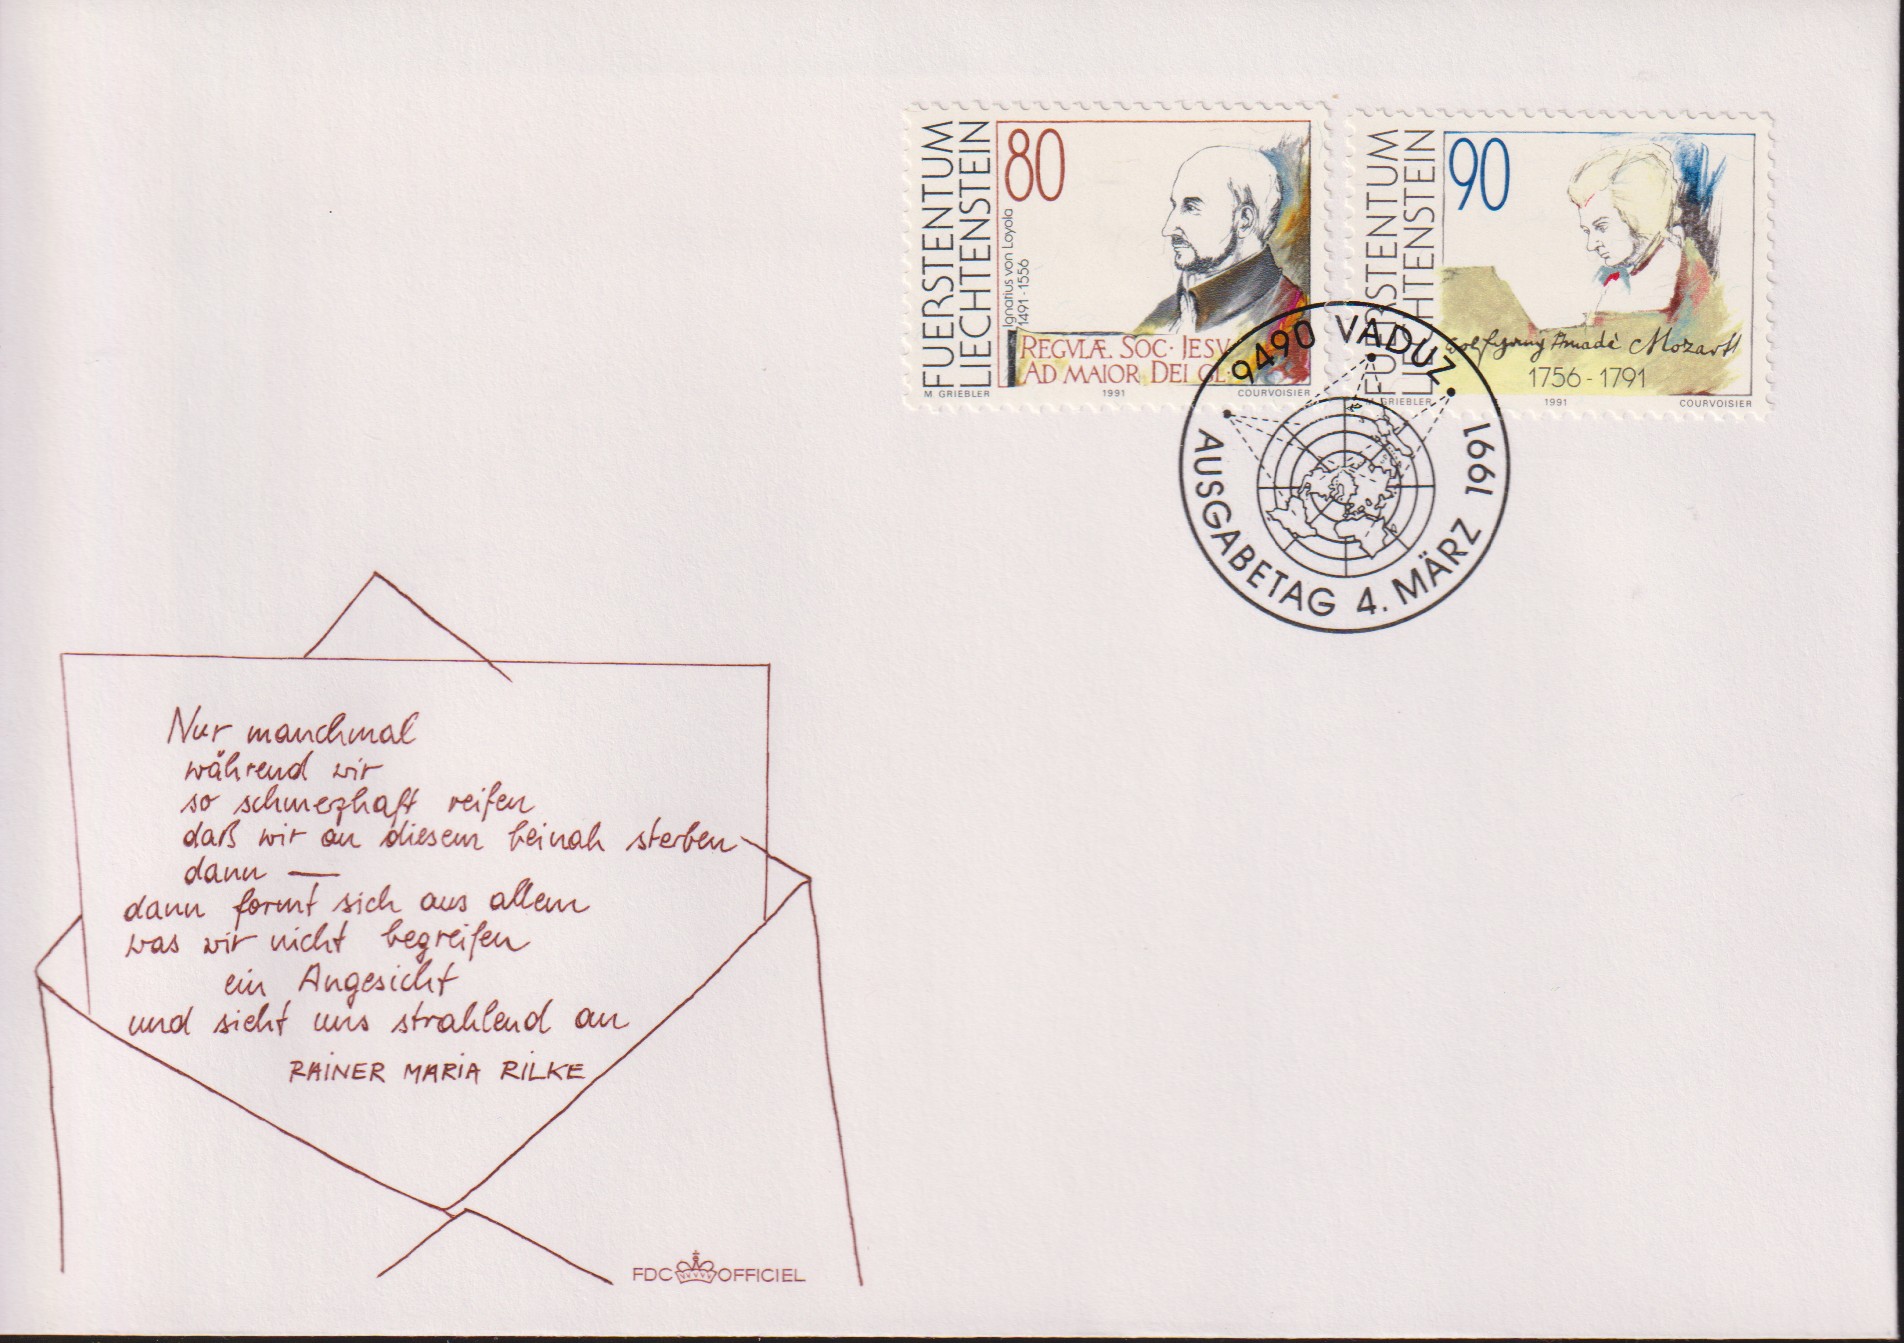 FUERSTENTUM
LIECHTENSTEIN
80
Ignatius von Loyola
1491-1556
REGVLÆ. SOC· IESV
AD MAIOR DEI GL·
M GRIEBLER 1991 COURVOISIER
FUERSTENTUM
LIECHTENSTEIN
90
Wolfgang Amadè Mozart
1756-1791
M. GRIEBLER 1991 COURVOISIER
9490 VADUZ
AUSGABETAG 4. MÄRZ 1991
Nur manchmal
während wir
so schmerzhaft reifen
daß wir an diesem beinah sterben
dann —
dann formt sich aus allem
was wir nicht begreifen
ein Angesicht
und sieht uns strahlend an
RAINER MARIA RILKE
FDC OFFICIEL